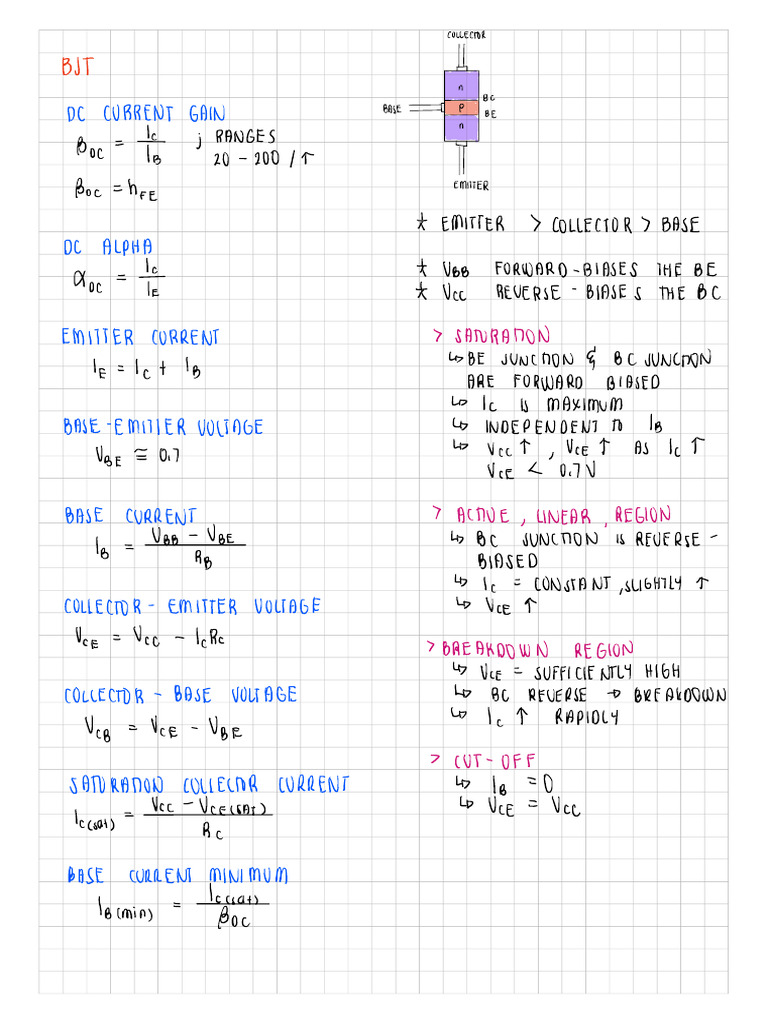 BJT
DC CURRENT GAIN
β_DC = I_C / I_B ; RANGES
20 - 200 / ↑
β_DC = h_FE
DC ALPHA
α_DC = I_C / I_E
EMITTER CURRENT
I_E = I_C + I_B
BASE-EMITTER VOLTAGE
V_BE ≅ 0.7
BASE CURRENT
I_B = V_BB - V_BE / R_B
COLLECTOR - EMITTER VOLTAGE
V_CE = V_CC - I_C R_C
COLLECTOR - BASE VOLTAGE
V_CB = V_CE - V_BE
SATURATION COLLECTOR CURRENT
I_C(sat) = V_CC - V_CE(sat) / R_C
BASE CURRENT MINIMUM
I_B(min) = I_C(sat) / β_DC
COLLECTOR
n
BC
BASE
p
BE
n
EMITTER
* EMITTER > COLLECTOR > BASE
* V_BB FORWARD-BIASES THE BE
* V_CC REVERSE-BIASES THE BC
> SATURATION
↳ BE JUNCTION & BC JUNCTION
ARE FORWARD BIASED
↳ I_C IS MAXIMUM
↳ INDEPENDENT TO I_B
↳ V_CC ↑ , V_CE ↑ AS I_C ↑
V_CE < 0.7 V
> ACTIVE , LINEAR , REGION
↳ BC JUNCTION IS REVERSE -
BIASED
↳ I_C = CONSTANT , SLIGHTLY ↑
↳ V_CE ↑
> BREAKDOWN REGION
↳ V_CE = SUFFICIENTLY HIGH
↳ BC REVERSE → BREAKDOWN
↳ I_C ↑ RAPIDLY
> CUT-OFF
↳ I_B = 0
↳ V_CE = V_CC